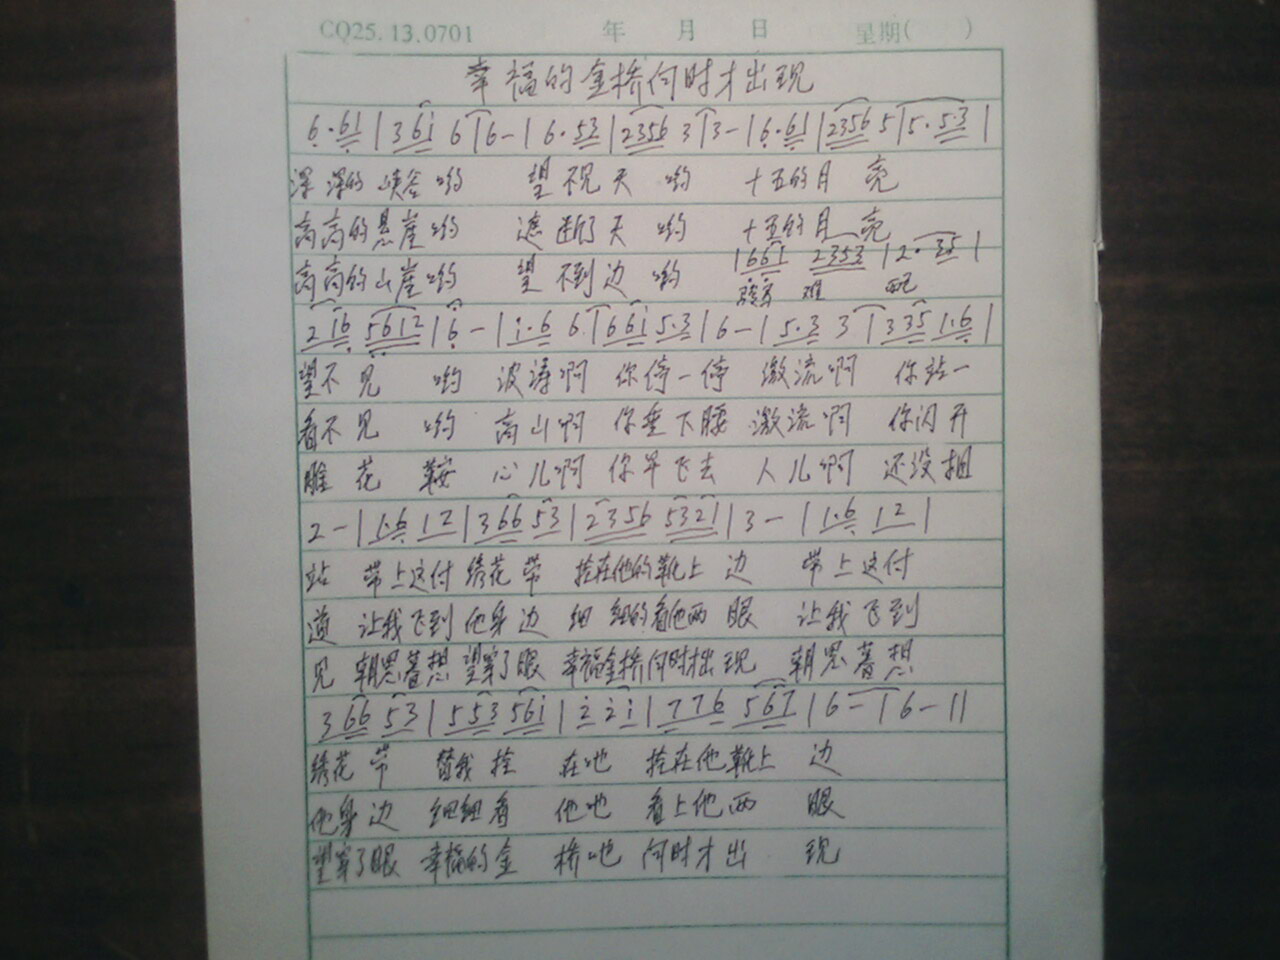 CQ25.13.0701 年 月 日 星期( )
幸福的金桥何时才出现
6·61|361 6|6-|6·53|2356 3|3-|6·61|2356 5|5·5·3|
深深的峡谷哟 望不见天 哟 十五的月 亮
高高的悬崖哟 遮断了天 哟 十五的月 亮
1661 2353|2·35|
高高的山崖哟 望不到边 哟 骏马 难 配
216 5612|6-|i·6 6|66i 5·3|6-|5·3 3|335 1·6|
望不见 哟 波涛啊 你停一停 激流啊 你站一
看不见 哟 高山啊 你垂下腰 激流啊 你闪开
雕花 鞍 心儿啊 你早飞去 人儿啊 还没相
2-|1·6 12|366 53|2356 5321|3-|1·6 12|
站 带上这付绣花带 拴在他的靴上 边 带上这付
道 让我飞到他身边 细细的看他两 眼 让我飞到
见 朝思暮想望穿了眼 幸福金桥何时才出 现 朝思暮想
366 53|553 56i|2 2i|776 567|6-|6-||
绣花带 替我拴 在吔 拴在他靴上 边
他身边 细细看 他吔 看上他两 眼
望穿了眼 幸福的金 桥吔 何时才出 现